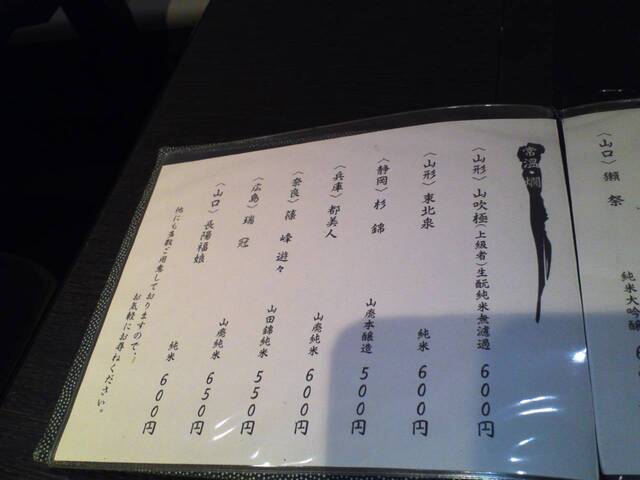 〈山口〉獺祭
純米大吟醸
常温・燗
〈山形〉山吹極(上級者)生酛純米無濾過 600円
〈山形〉東北泉 純米 600円
〈静岡〉杉錦 山廃本醸造 500円
〈兵庫〉都美人 山廃純米 600円
〈奈良〉篠峰遊々 山田錦純米 550円
〈広島〉瑞冠 山廃純米 650円
〈山口〉長陽福娘 純米 600円
他にも多数ご用意しておりますので、
お気軽にお尋ねください。